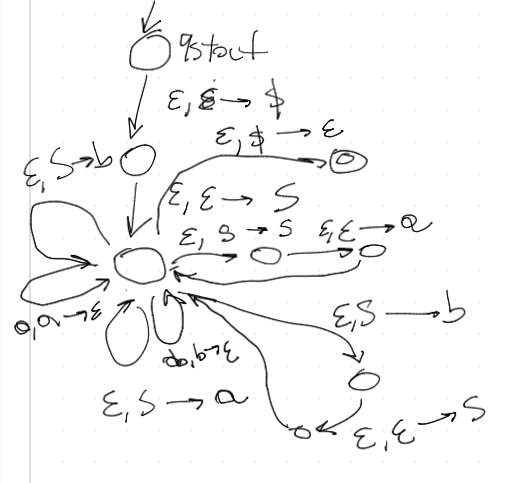 qstart
ε, ε → $
ε, $ → ε
ε, S → b
ε, ε → S
ε, S → S
ε, ε → a
a, a → ε
b, b → ε
ε, S → b
ε, S → a
ε, ε → S